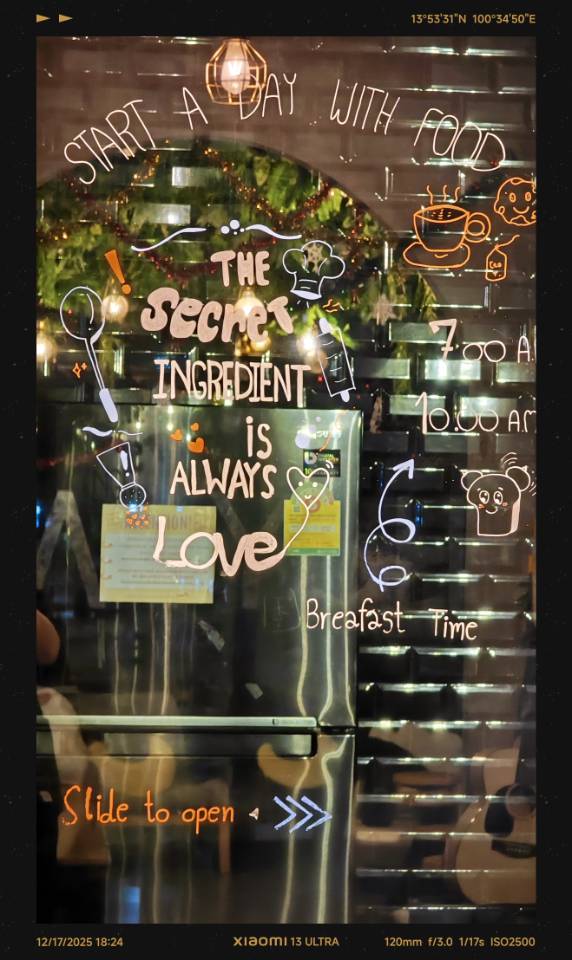 13°53'31"N 100°34'50"E
START A DAY WITH FOOD
THE
Secret
INGREDIENT
is
ALWAYS
Love
7.00 A
10.00 AM
Breafast Time
Slide to open
12/17/2025 18:24
XIAOMI 13 ULTRA
120mm f/3.0 1/17s ISO2500